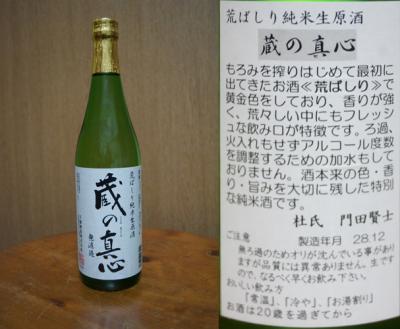 荒ばしり純米生原酒
蔵の真心
無濾過
荒ばしり純米生原酒
蔵の真心
もろみを搾りはじめて最初に
出てきたお酒≪荒ばしり≫で
黄金色をしており、香りが強
く、荒々しい中にもフレッシ
ュな飲み口が特徴です。ろ過、
火入れもせずアルコール度数
を調整するための加水もして
おりません。酒本来の色・香
り・旨みを大切に残した特別
な純米酒です。
杜氏 門田賢士
ご注意 製造年月 28.12
無ろ過のためオリが沈んでいる事があり
ますが品質には異常ありません。生です
ので、なるべく早くお飲み下さい。
おいしい飲み方
「常温」、「冷や」、「お湯割り」
お酒は20歳を過ぎてから